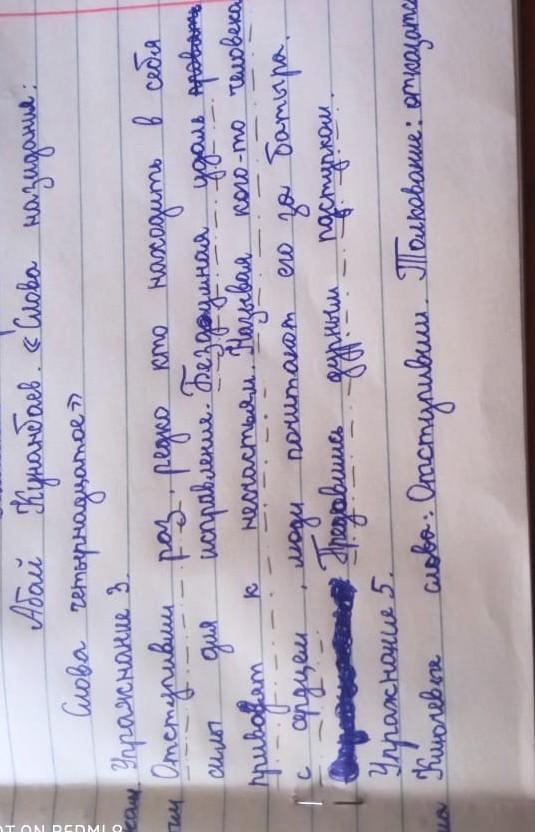 Абай Кунанбаев. «Слова назидания:
Слова четырнадцатое»
Упражнание 3.
Отступивши раз, редко кто находит в себя
силы для исправления. Бездушная удаль
приводят к несчастьям. Называя кого-то человека
с сердцем, люди почитают его за батыра.
Предавшись дурным поступкам.
Упражнание 5.
Ключевые слово: Отступивши. Толкование: отказаться
SHOT ON REDMI 8